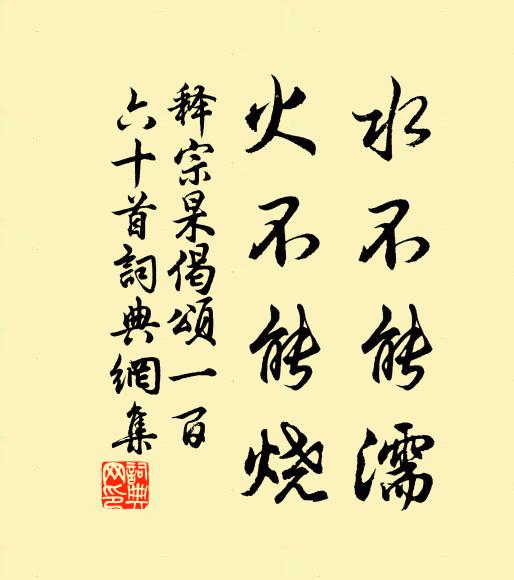 水不能濡
火不能烧
释宗杲偈颂一百
六十首詞典網集
詞典
网印